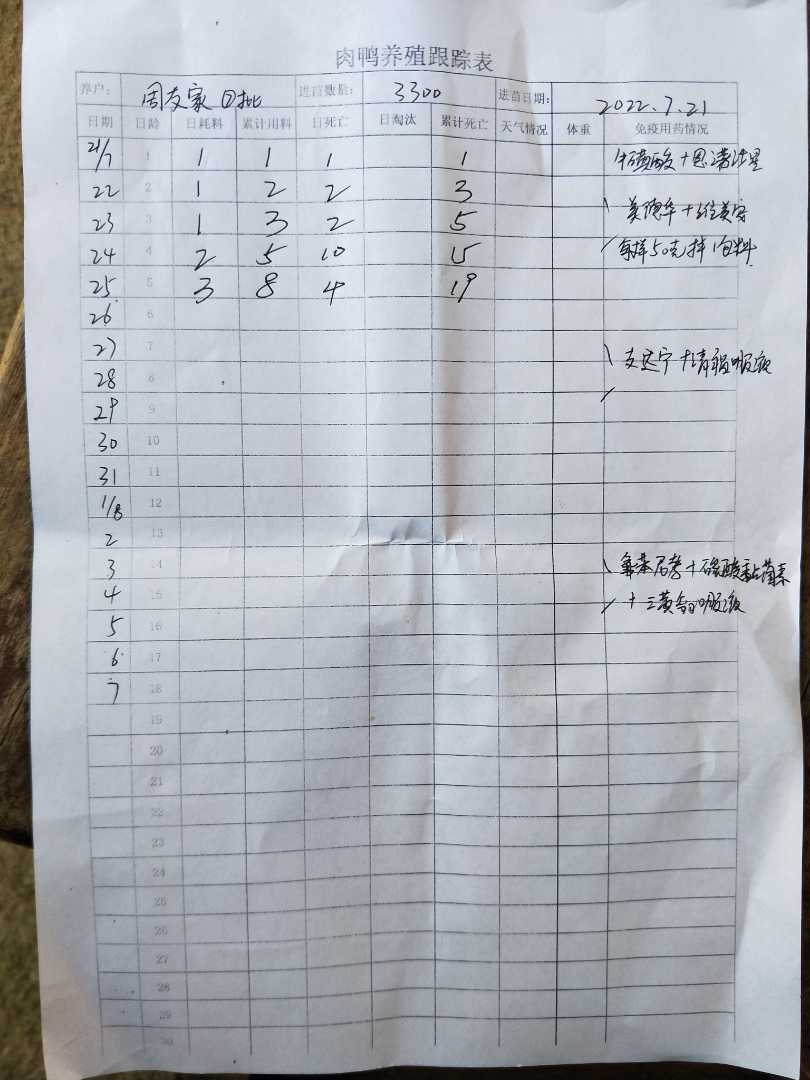 肉鸭养殖跟踪表
养户: 周友家 ②批 进苗数量: 3300 进苗日期: 2022.7.21
日期 日龄 日耗料 累计用料 日死亡 日淘汰 累计死亡 天气情况 体重 免疫用药情况
21/7 1 1 1 1 1 牛磺酸+恩诺沙星
22 2 1 2 2 3
23 3 1 3 2 5
24 4 2 5 10 15 每样50克拌1包料
25 5 3 8 4 19
26 6
27 7
28 8
29 9
30 10
31 11
1/8 12
2 13
3 14 氟苯尼考+硫酸黏菌素
4 15
5 16
6 17
7 18
19
20
21
22
23
24
25
26
27
28
29
30